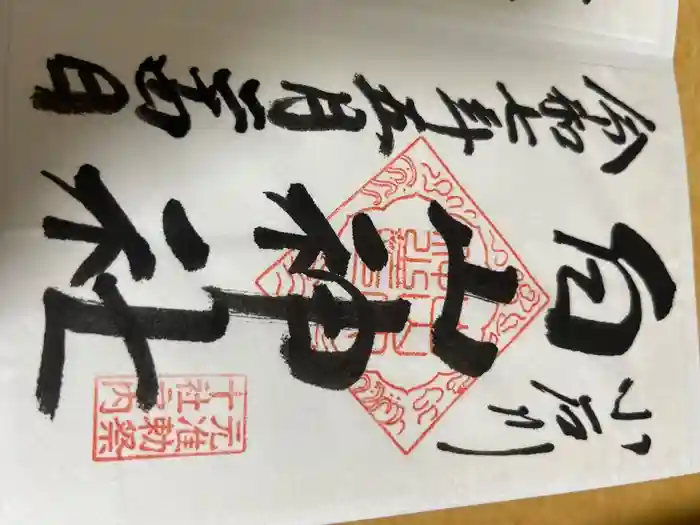 小石川
白山神社
元准勅祭
十社之内
令和七年五月二十四日